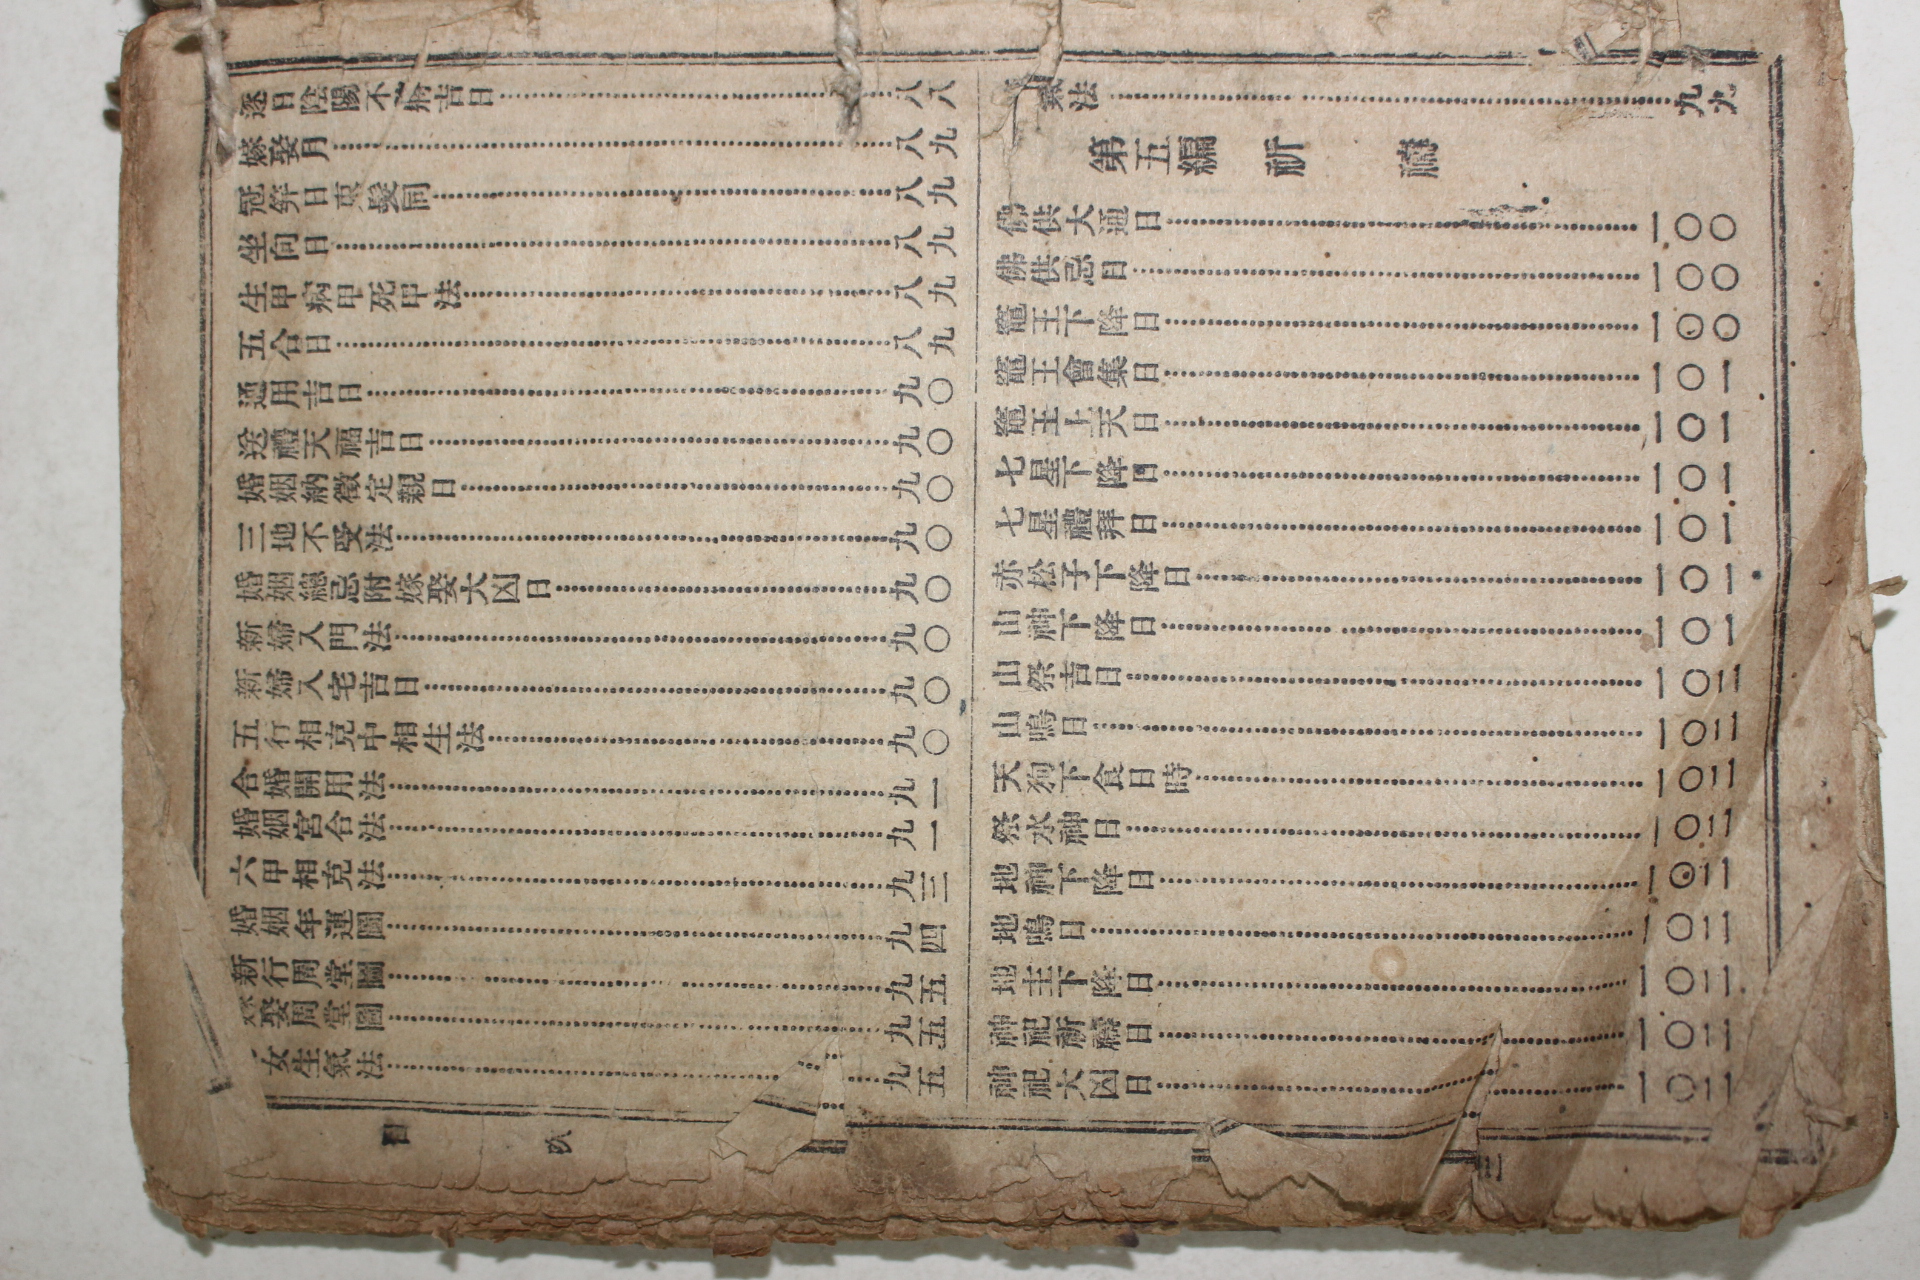 逐日陰陽不將吉日……八八
嫁娶月……八九
冠笄日束髮同……八九
坐向日……八九
生甲病甲死甲法……八九
五合日……八九
通用吉日……九〇
送禮天福吉日……九〇
婚姻納徵定親日……九〇
三地不受法……九〇
婚姻總忌附嫁娶大凶日……九〇
新婦入門法……九〇
新婦入宅吉日……九〇
五行相克中相生法……九〇
合婚開用法……九一
婚姻宮合法……九一
六甲相克法……九三
婚姻年運圖……九四
新行周堂圖……九五
娶周堂圖……九五
女生氣法……九五
法……九九
第五編 祈 禱
佛供大通日……一〇〇
佛供忌日……一〇〇
竈王下降日……一〇〇
竈王會集日……一〇一
竈王上天日……一〇一
七星下降日……一〇一
七星禮拜日……一〇一
赤松子下降日……一〇一
山神下降日……一〇一
山祭吉日……一〇二
山鳴日……一〇二
天狗下食日時……一〇二
祭水神日……一〇二
地神下降日……一〇二
地鳴日……一〇二
地主下降日……一〇二
神祀祈禱日……一〇二
神祀大凶日……一〇二
目 次